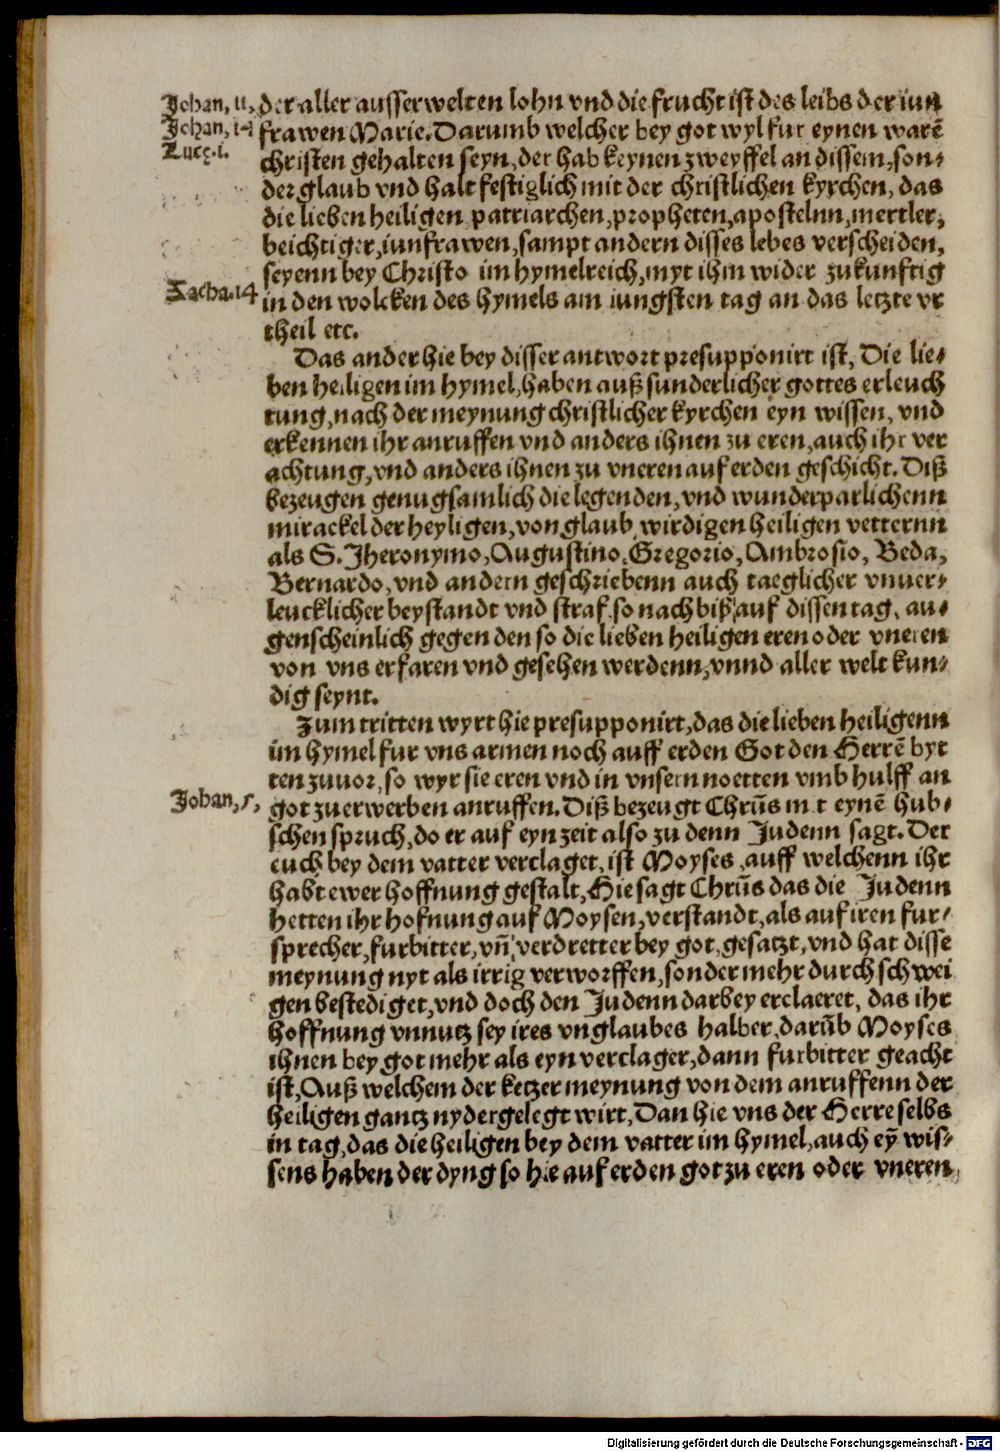 Johan, 11,
Johan, 14
Luce. i.
der aller ausserwelten lohn vnd die frucht ist des leibs der iun
frawen Marie. Darumb welcher bey got wyl fur eynen warē
christen gehalten seyn, der hab keynen zweyffel an dissem, son-
der glaub vnd halt festiglich mit der christlichen kyrchen, das
die lieben heiligen patriarchen, propheten, apostelnn, mertler,
beichtiger, iunfrawen, sampt andern disses lebes verscheiden,
seyenn bey Christo im hymelreich, myt ihm wider zukunftig
Zacha. 14
in den wolcken des hymels am iungsten tag an das letzte vr
theil etc.
Das ander hie bey disser antwort presupponirt ist, Die lie-
ben heiligen im hymel, haben auß sunderlicher gottes erleuch
tung, nach der meynung christlicher kyrchen eyn wissen, vnd
erkennen ihr anruffen vnd anders ihnen zu eren, auch ihr ver
achtung, vnd anders ihnen zu vneren auf erden geschicht. Diß
bezeugen genugsamlich die legenden, vnd wunderparlichenn
mirackel der heyligen, von glaub wirdigen heiligen vetternn
als S. Jheronymo, Augustino, Gregorio, Ambrosio, Beda,
Bernardo, vnd andern geschriebenn auch taeglicher vnuer-
leucklicher beystandt vnd straf, so nach biß auf dissen tag, au-
genscheinlich gegen den so die lieben heiligen eren oder vneren
von vns erfaren vnd gesehen werdenn, vnnd aller welt kun-
dig seynt.
Zum tritten wyrt hie presupponirt, das die lieben heiligenn
im hymel fur vns armen noch auff erden Got den Herrē byt
ten zuuor, so wyr sie eren vnd in vnsern noetten vmb hulff an
Johan, 5,
got zu erwerben anruffen. Diß bezeugt Chrūs mit eynē hub-
schen spruch, do er auf eyn zeit also zu denn Judenn sagt. Der
euch bey dem vatter verclaget, ist Moyses, auff welchenn ihr
habt ewer hoffnung gestalt, Hie sagt Chrūs das die Judenn
hetten ihr hofnung auf Moysen, verstandt, als auf iren fur-
sprecher, furbitter, vn̄ verdretter bey got, gesatzt, vnd hat disse
meynung nyt als irrig verworffen, sonder mehr durch schwei
gen bestediget, vnd doch den Judenn darbey erclaeret, das ihr
hoffnung vnnutz sey ires vnglaubes halber, darūb Moyses
ihnen bey got mehr als eyn verclager, dann furbitter geacht
ist, Auß welchem der ketzer meynung von dem anruffenn der
heiligen gantz nydergelegt wirt, Dan hie vns der Herre selbs
in tag, das die heiligen bey dem vatter im hymel, auch eȳ wis-
sens haben der dyng so hie auf erden got zu eren oder vneren,
Digitalisierung gefördert durch die Deutsche Forschungsgemeinschaft - DFG